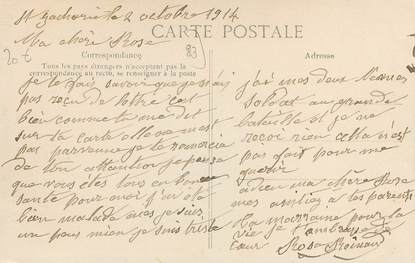 St Zacharie le 2 octobre 1914
Ma chère Rose
CARTE POSTALE
20 f
83
Correspondance
Tous les pays étrangers n'acceptent pas la
correspondance au recto, se renseigner à la poste
Adresse
je te fais savoir que je n'ai
pas reçu de lettre
bien comme tu me dit
sur la carte elle ne m'est
pas parvenue je te remercie
de ton attention je pense
que vous êtes tous en bonne
santé pour moi j'ai été
bien malade mes je suis
un peux mieu je suis triste
j'ai mes deux Neveux
soldat au grande
bataille et je ne
reçoi rien cella n'est
pas fait pour me
guérir
adieu ma chère Rose
mes amitiez à tes parents
ta marraine pour la
vie je t'embrasse de
cœur Rose